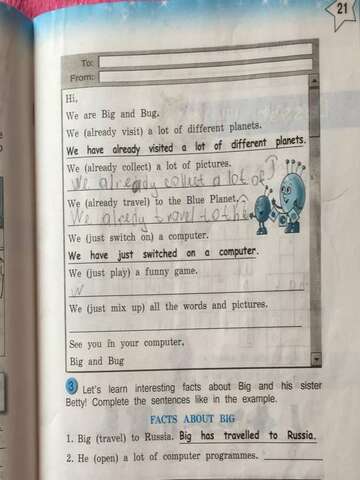 21
To:
From:
Hi,
We are Big and Bug.
We (already visit) a lot of different planets.
We have already visited a lot of different planets.
We (already collect) a lot of pictures.
We already collect a lot of
We (already travel) to the Blue Planet.
We already travel to the
We (just switch on) a computer.
We have just switched on a computer.
We (just play) a funny game.
W
We (just mix up) all the words and pictures.
See you in your computer,
Big and Bug
3 Let's learn interesting facts about Big and his sister
Betty! Complete the sentences like in the example.
FACTS ABOUT BIG
1. Big (travel) to Russia. Big has travelled to Russia.
2. He (open) a lot of computer programmes.